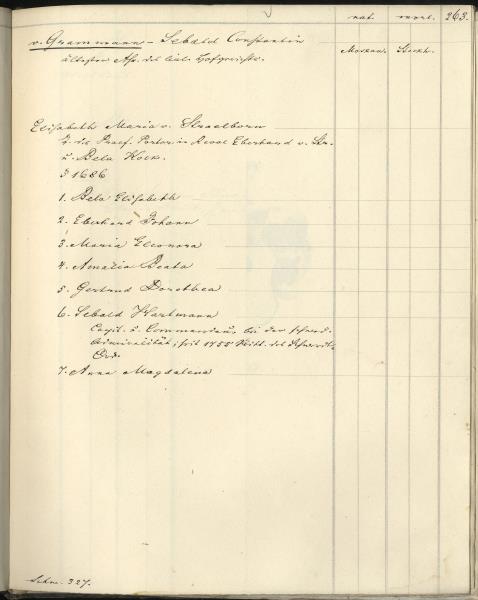 nat. mort. 263.
v. Grammann – Sebald Constantin Moskau. Stockh.
ältester Ass. des livl. Hofgerichts.
Elisabeth Maria v. Straelborn
T. des Praef. Portor. in Reval Eberhard v. Str.
u. Bela Kock.
1686
1. Bela Elisabeth
2. Eberhard Johann
3. Maria Eleonora
4. Amalia Beata
5. Gertrud Dorothea
6. Sebald Hartmann
Capit. u. Commandeur bei der schwed.
Admiralität; seit 1752 Ritt. des Schwert-
Ord.
7. Anna Magdalena
Schw. 327.